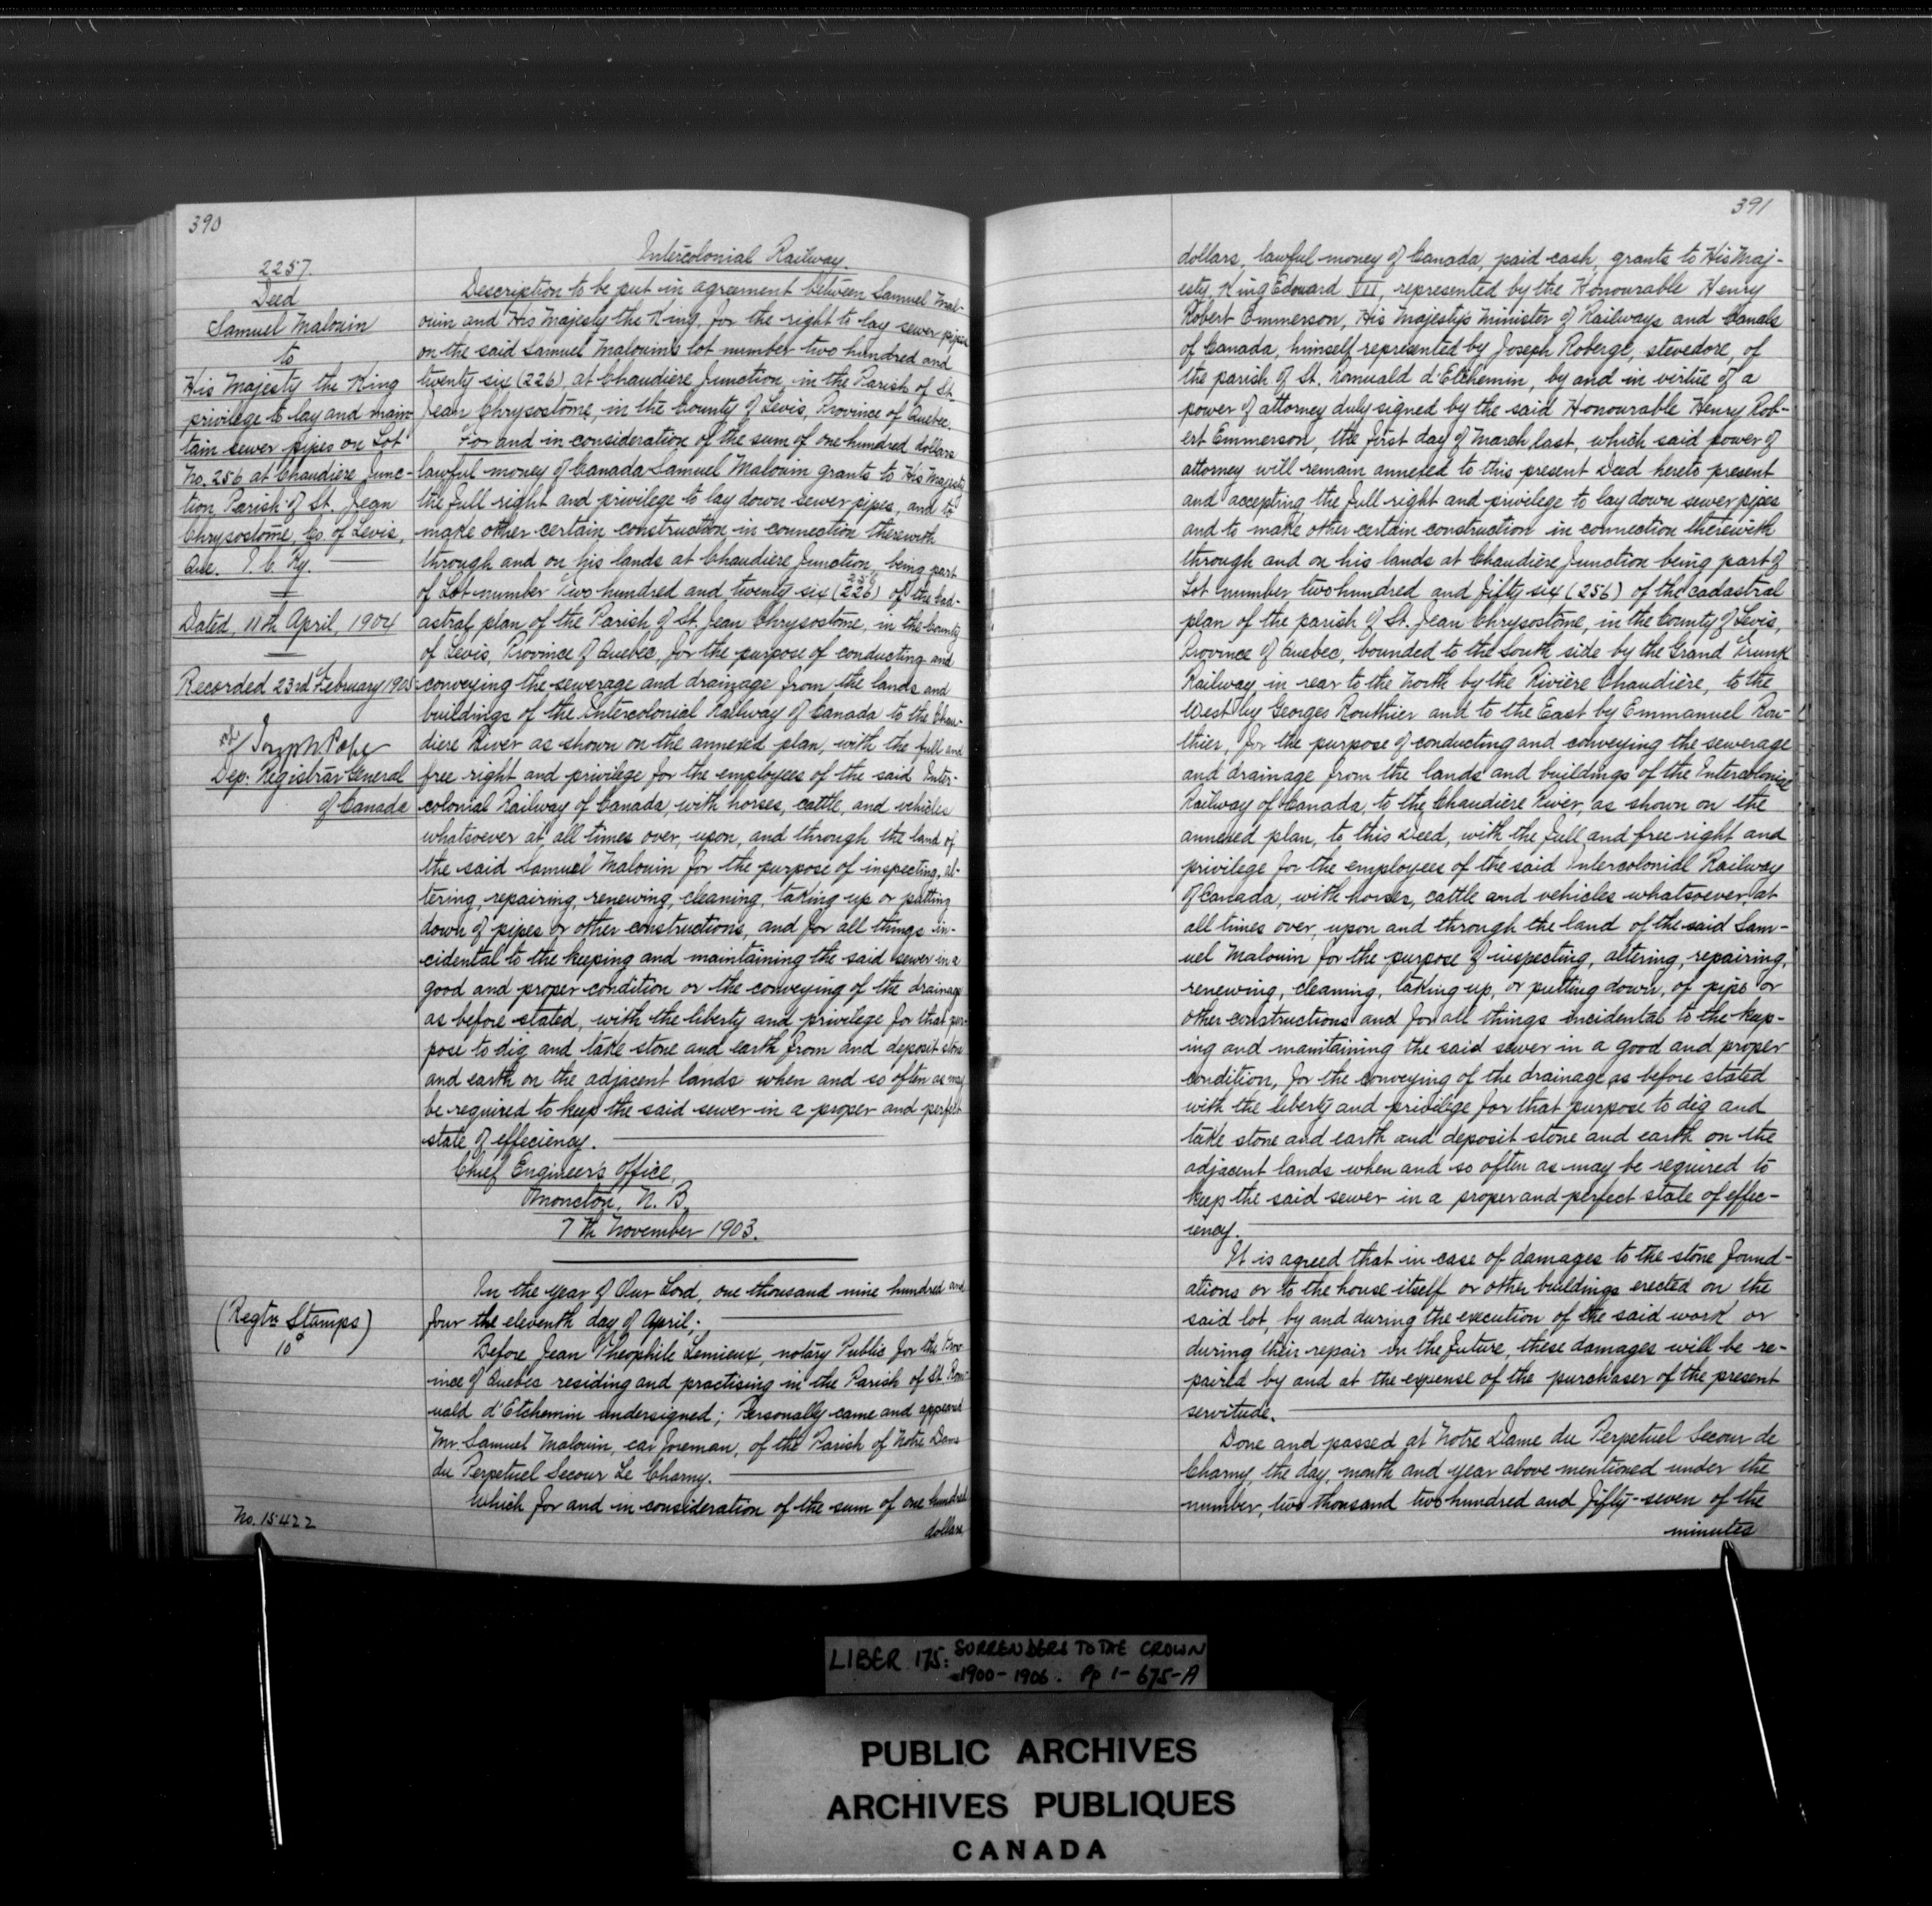 390
2257.
Deed
Samuel Malouin
to
His Majesty the King
privilege to lay and main-
tain sewer pipes on Lot
No. 256 at Chaudiere Junc-
tion Parish of St. Jean
Chrysostome, Co. of Levis,
Que. I. C. Ry.
Dated, 11th April, 1904
Recorded 23rd February 1905
Joseph Pope
Dep: Registrar General
of Canada
(Regtn Stamps)
10¢
No. 15422
Intercolonial Railway.
Description to be put in agreement between Samuel Mal-
ouin and His Majesty the King, for the right to lay sewer pipes
on the said Samuel Malouin's lot number two hundred and
twenty six (226) at Chaudiere Junction, in the Parish of St.
Jean Chrysostome, in the County of Levis, Province of Quebec.
For and in consideration of the sum of one hundred dollars
lawful money of Canada Samuel Malouin grants to His Majesty
the full right and privilege to lay down sewer pipes, and to
make other certain construction in connection therewith
through and on his lands at Chaudiere Junction, being part
256
of Lot number Two hundred and twenty six (226) of the Cad-
astral plan of the Parish of St. Jean Chrysostome, in the County
of Levis, Province of Quebec, for the purpose of conducting and
conveying the sewerage and drainage from the lands and
buildings of the Intercolonial Railway of Canada to the Chau-
diere River as shown on the annexed plan, with the full and
free right and privilege for the employees of the said Inter-
colonial Railway of Canada, with horses, cattle, and vehicles
whatsoever at all times over, upon, and through the land of
the said Samuel Malouin for the purpose of inspecting, al-
tering, repairing, renewing, cleaning, taking up or putting
down of pipes or other constructions, and for all things in-
cidental to the keeping and maintaining the said sewer in a
good and proper condition or the conveying of the drainage
as before stated, with the liberty and privilege for that pur-
pose to dig and take stone and earth from and deposit stone
and earth on the adjacent lands when and so often as may
be required to keep the said sewer in a proper and perfect
state of effeciency.
Chief Engineer's Office
Moncton, N. B.
7th November 1903.
In the year of Our Lord, one thousand nine hundred and
four the eleventh day of April;
Before Jean Theophile Lemieux, notary Public for the Prov-
ince of Quebec residing and practising in the Parish of St. Rom-
uald d'Etchemin undersigned; Personally came and appeared
Mr. Samuel Malouin, car foreman, of the Parish of Notre Dame
du Perpetuel Secour Le Charny.
Which for and in consideration of the sum of one hundred
dollars
391
dollars, lawful money of Canada, paid cash, grants to His Maj-
esty, King Edouard VII, represented by the Honourable Henry
Robert Emmerson, His Majesty's Minister of Railways and Canals
of Canada, himself represented by Joseph Roberge, stevedore, of
the parish of St. Romuald d'Etchemin, by and in virtue of a
power of attorney duly signed by the said Honourable Henry Rob-
ert Emmerson, the first day of March last, which said power of
attorney will remain annexed to this present Deed hereto present
and accepting, the full right and privilege to lay down sewer pipes
and to make other certain construction in connection therewith
through and on his lands at Chaudière Junction being part of
Lot number two hundred and fifty six (256) of the cadastral
plan of the parish of St. Jean Chrysostome, in the County of Levis,
Province of Quebec, bounded to the South side by the Grand Trunk
Railway in rear to the North by the Rivière Chaudière, to the
West by Georges Routhier and to the East by Emmanuel Rou-
thier, for the purpose of conducting and conveying the sewerage
and drainage from the lands and buildings of the Intercolonial
Railway of Canada, to the Chaudière River, as shown on the
annexed plan, to this Deed, with the full and free right and
privilege for the employees of the said Intercolonial Railway
of Canada, with horses, cattle and vehicles whatsoever, at
all times over, upon and through the land of the said Sam-
uel Malouin for the purpose of inspecting, altering, repairing,
renewing, cleaning, taking up, or putting down, of pipes or
other constructions and for all things incidental to the keep-
ing and maintaining the said sewer in a good and proper
condition, for the conveying of the drainage as before stated
with the liberty and privilege for that purpose to dig and
take stone and earth and deposit stone and earth on the
adjacent lands when and so often as may be required to
keep the said sewer in a proper and perfect state of effec-
iency.
It is agreed that in case of damages to the stone found-
ations or to the house itself or other buildings erected on the
said lot, by and during the execution of the said work or
during their repair in the future, these damages will be re-
paired by and at the expense of the purchaser of the present
servitude.
Done and passed at Notre Dame du Perpetuel Secour de
Charny, the day, month and year above mentioned under the
number, two thousand two hundred and fifty-seven of the
minutes
LIBER 175: SURRENDERS TO THE CROWN
1900-1906. Pp 1-675-A
PUBLIC ARCHIVES
ARCHIVES PUBLIQUES
CANADA